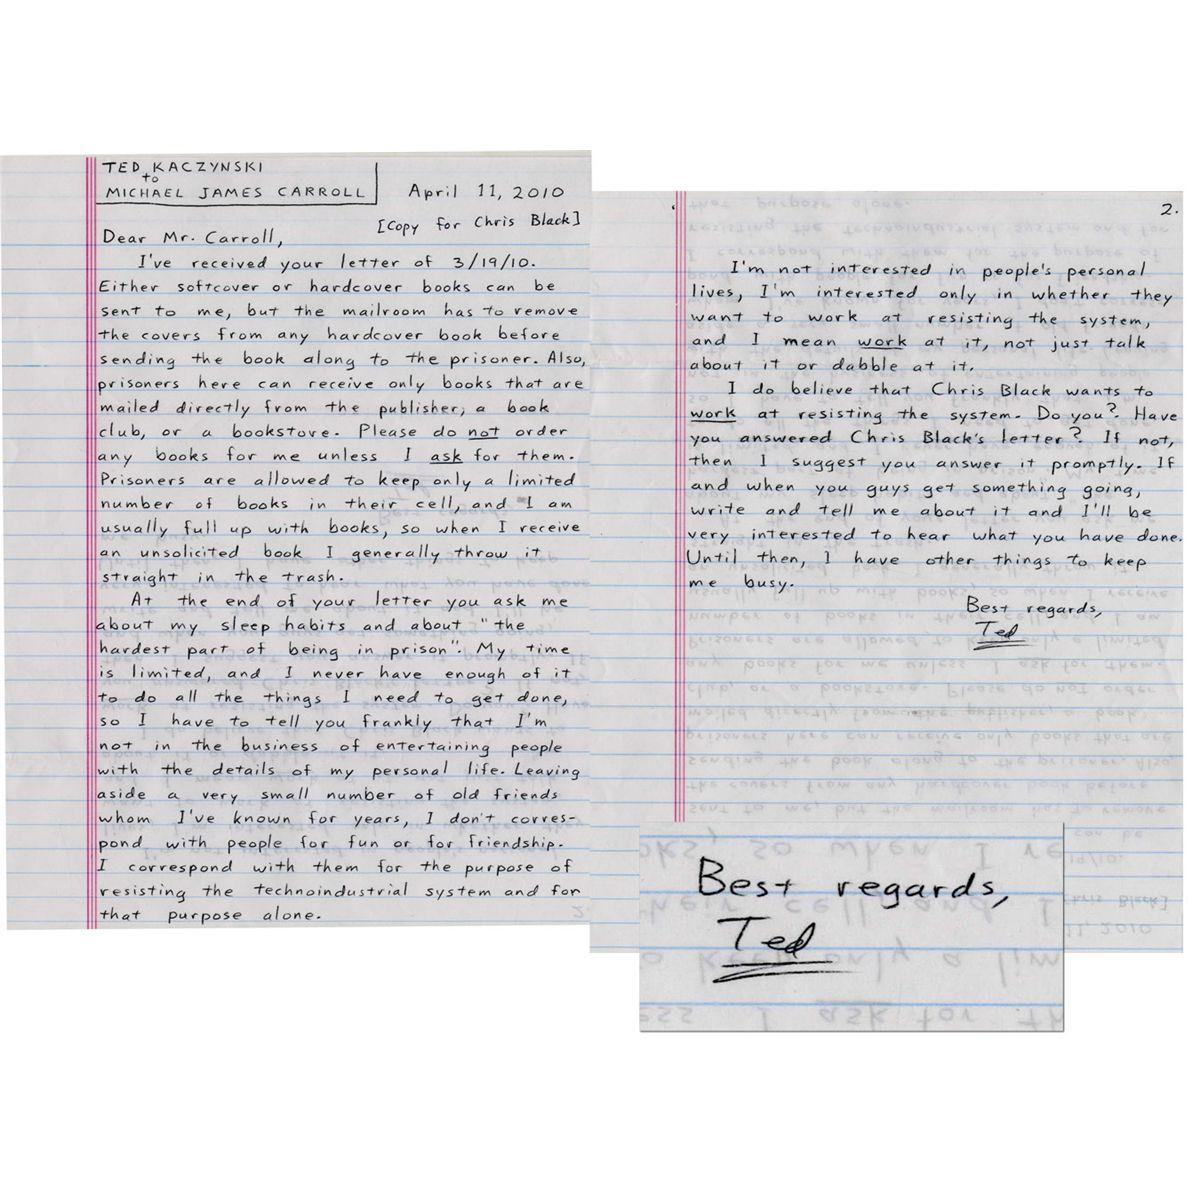 TED KACZYNSKI
to
MICHAEL JAMES CARROLL
April 11, 2010
[Copy for Chris Black]
Dear Mr. Carroll,
I've received your letter of 3/19/10.
Either softcover or hardcover books can be
sent to me, but the mailroom has to remove
the covers from any hardcover book before
sending the book along to the prisoner. Also,
prisoners here can receive only books that are
mailed directly from the publisher, a book
club, or a bookstore. Please do not order
any books for me unless I ask for them.
Prisoners are allowed to keep only a limited
number of books in their cell, and I am
usually full up with books, so when I receive
an unsolicited book I generally throw it
straight in the trash.
At the end of your letter you ask me
about my sleep habits and about "the
hardest part of being in prison". My time
is limited, and I never have enough of it
to do all the things I need to get done,
so I have to tell you frankly that I'm
not in the business of entertaining people
with the details of my personal life. Leaving
aside a very small number of old friends
whom I've known for years, I don't corres-
pond with people for fun or for friendship.
I correspond with them for the purpose of
resisting the technoindustrial system and for
that purpose alone.
2.
I'm not interested in people's personal
lives, I'm interested only in whether they
want to work at resisting the system,
and I mean work at it, not just talk
about it or dabble at it.
I do believe that Chris Black wants to
work at resisting the system. Do you? Have
you answered Chris Black's letter? If not,
then I suggest you answer it promptly. If
and when you guys get something going,
write and tell me about it and I'll be
very interested to hear what you have done.
Until then, I have other things to keep
me busy.
Best regards,
Ted
Best regards,
Ted